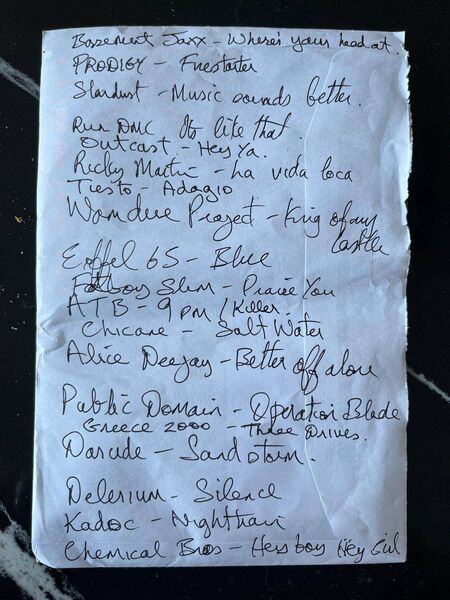 Basement Jaxx - Where's your head at.
PRODIGY - Firestarter
Stardust - Music sounds better.
Run DMC Its like that.
Outcast - Hey Ya.
Ricky Martin - La vida loca
Tiesto - Adagio
Wamdue Project - King of my
Castle
Eiffel 65 - Blue
Fatboy Slim - Praise You
ATB - 9 pm / Killer.
Chicane - Salt Water
Alice Deejay - Better off alone
Public Domain - Operation Blade
Greece 2000 - Three Drives.
Darude - Sandstorm.
Delerium - Silence
Kadoc - Nighttrain
Chemical Bros - Hey boy Hey Girl